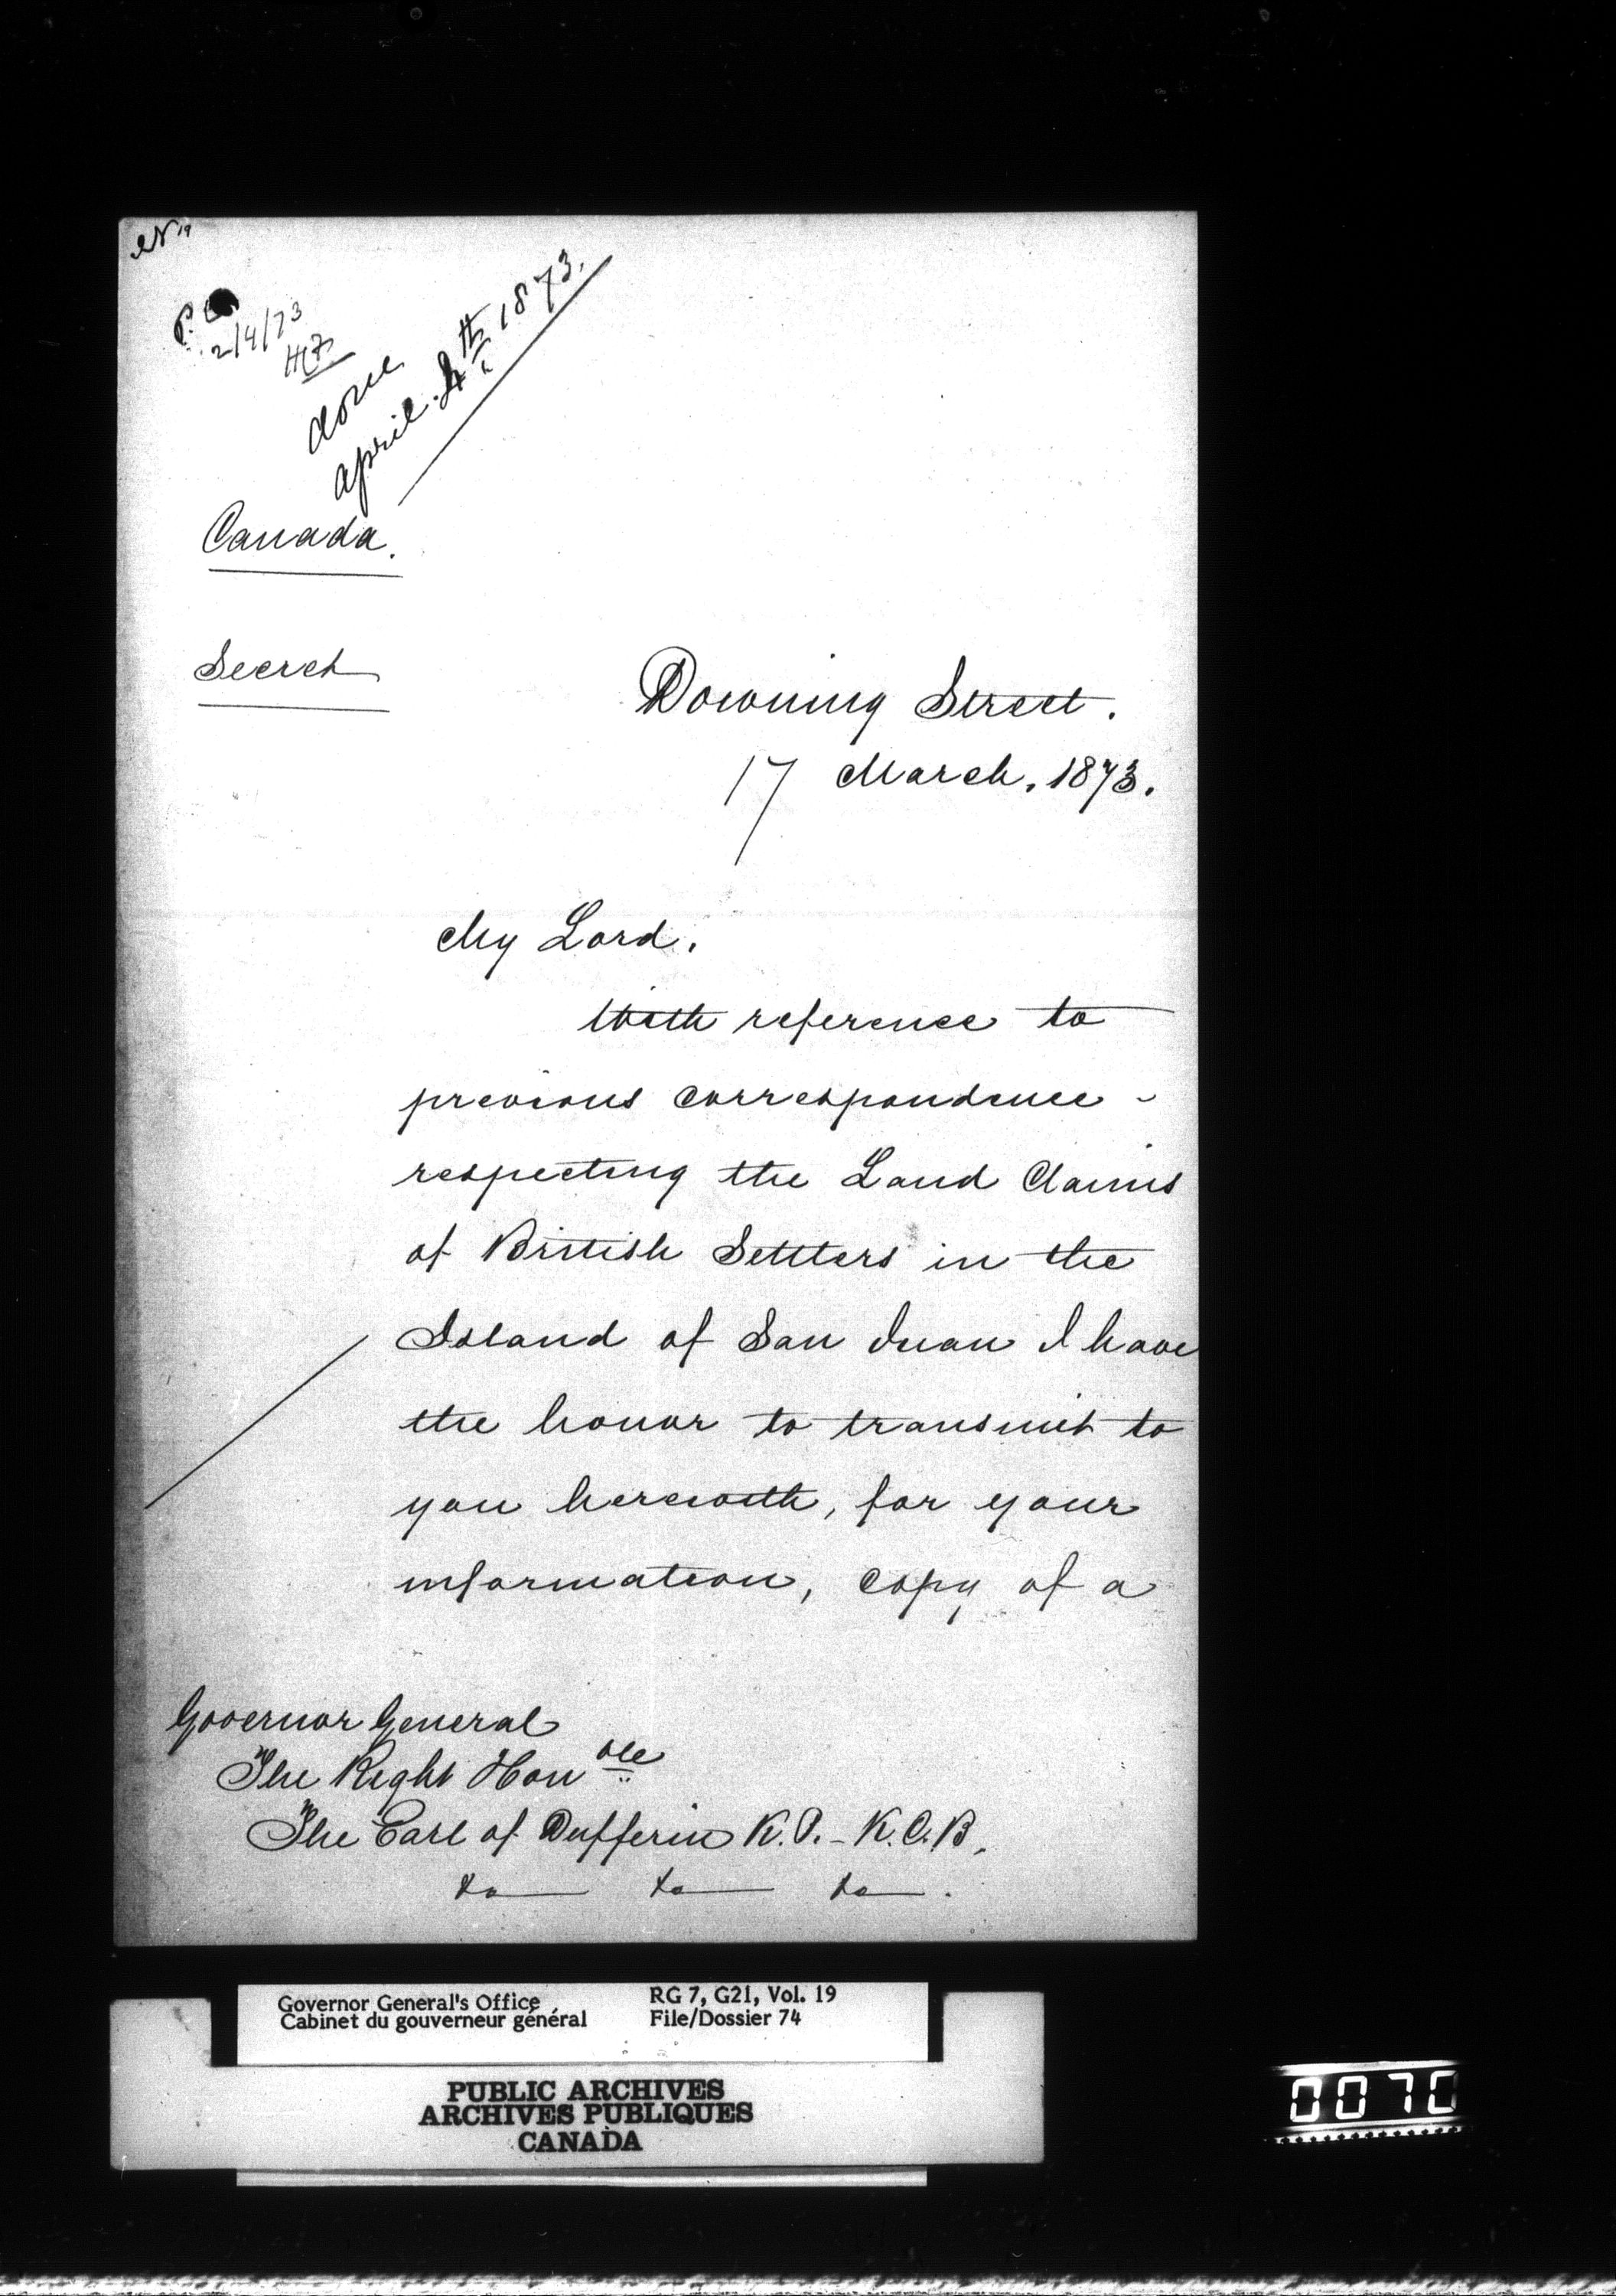 2/4/73
done
April 4th 1873.
Canada.
Secret
Downing Street.
17 March, 1873.
My Lord,
With reference to
previous correspondence -
respecting the Land Claims
of British Settlers in the
Island of San Juan I have
the honor to transmit to
you herewith, for your
information, copy of a
Governor General
The Right Honble
The Earl of Dufferin K.P. - K.C.B.
Governor General's Office
Cabinet du gouverneur général
RG 7, G21, Vol. 19
File/Dossier 74
PUBLIC ARCHIVES
ARCHIVES PUBLIQUES
CANADA
0070